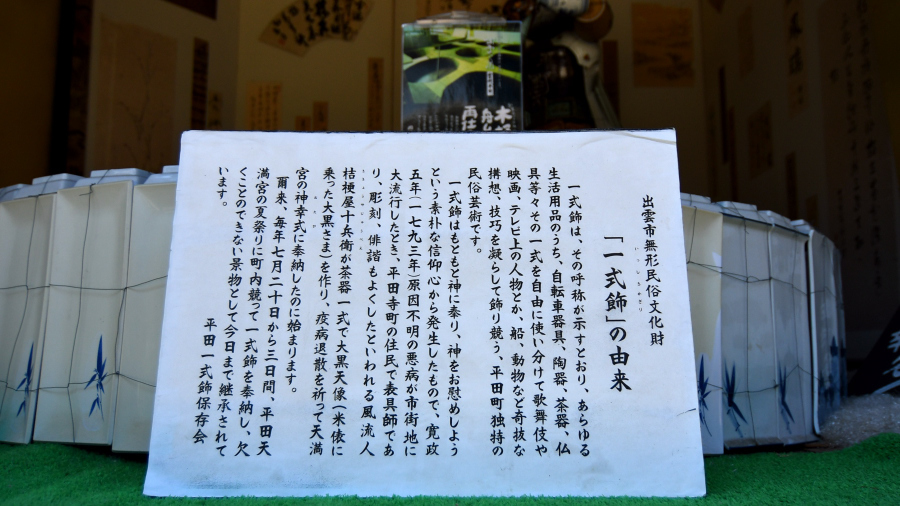 出雲市無形民俗文化財
「一式飾」の由来
いっしきかざり
一式飾は、その呼称が示すとおり、あらゆる
生活用品のうち、自転車器具、陶器、茶器、仏
具等々その一式を自由に使い分けて歌舞伎や
映画、テレビ上の人物とか、船、動物など奇抜な
構想、技巧を凝らして飾り競う、平田町独特の
民俗芸術です。
一式飾はもともと神に奉り、神をお慰めしよう
という素朴な信仰心から発生したもので、寛政
五年（一七九三年）原因不明の悪病が市街地に
大流行したとき、平田寺町の住民で表具師であ
り、彫刻、俳諧もよくしたといわれる風流人
桔梗屋十兵衛が茶器一式で大黒天像（米俵に
乗った大黒さま）を作り、疫病退散を祈って天満
宮の神幸式に奉納したのに始まります。
爾来、毎年七月二十日から三日間、平田天
満宮の夏祭りに町内競って一式飾を奉納し、欠
くことのできない景物として今日まで継承されて
います。
平田一式飾保存会